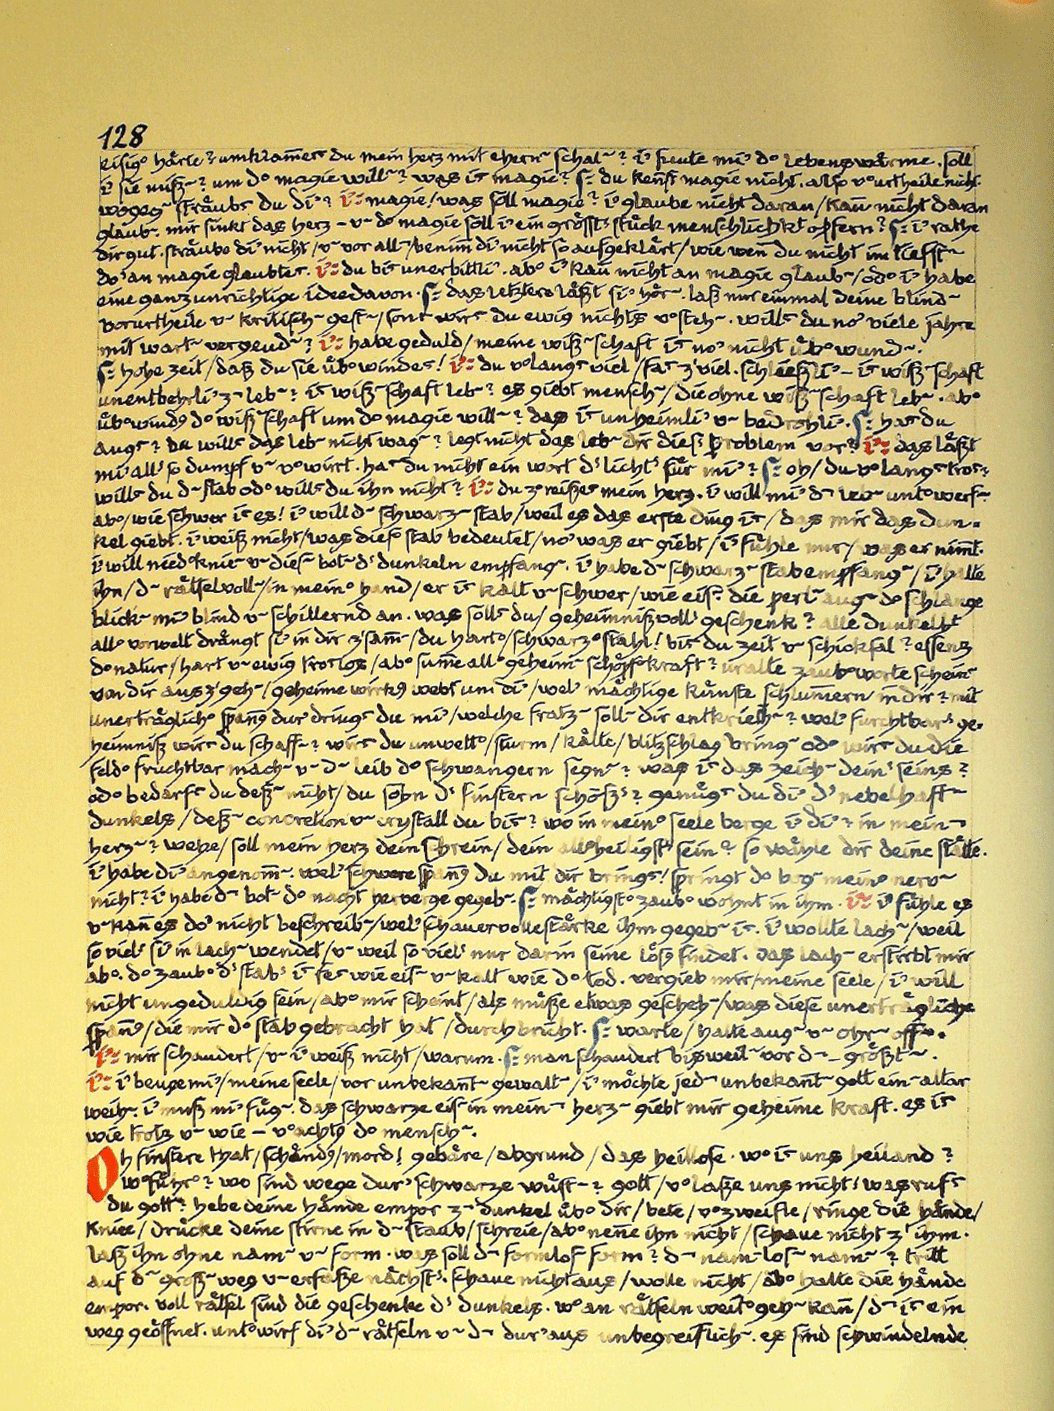 128
eisig° härte? umklam̄erst du mein herz mit ehern~ schal~? i~ freute mi~ d° lebenswärme. soll
i~ sie miß~? um d° magie will~? was ist magie? S: du ken̄st magie nicht. also v°urtheile nicht.
wogeg~ sträubst du di~? i~: magie/ was soll magie? i~ glaube nicht daran/ kan̄ nicht daran
glaub~. mir sinkt das herz – v~ d° magie soll i~ ein größst~ stück menschlichkt opfern? S: i~ rathe
dir gut. sträube di~ nicht/ v~ vor all~/ benim̄ di~ nicht so aufgeklärt/ wie wen̄ du nicht im tiefst~
do~ an magie glaubtest. i~: du bist unerbittli~. ab° i~ kan̄ nicht an magie glaub~/ od° i~ habe
eine ganz unrichtige idee davon. S: das letztere läßt si~ hör~. laß nur einmal deine blind~
vorurtheile v~ kritisch~ gest~/ sonst wirst du ewig nichts v°steh~. willst du no~ viele jahre
mit wart~ vergeud~? i~: habe geduld/ meine wiß~schaft ist no~ nicht üb°wund~.
S: hohe zeit/ daß du sie üb°windest! i~: du v°langst viel/ fast z~viel. schließli~ – ist wiß~schaft
unentbehrli~ z~ leb~? ist wiß~schaft leb~? es giebt mensch~/ die ohne wiß~schaft leb~. ab°
üb°wind~ d° wiß~schaft um d° magie will~? das ist unheimli~ v~ bedrohli~. S: hast du
angst? du willst das leb~ nicht wag~? legt nicht das leb~ dir dieß problem vor? i~: das läßt
mi~ all's so dumpf v~ v°wirrt. hast du nicht ein wort d's licht's für mi~? S: oh/ du v°langst trost?
willst du d~ stab od° willst du ihn nicht? i~: du z°reißest mein herz. i~ will mi~ d~ leb~ unt°werf~.
ab°/ wie schwer ist es! i~ will d~ schwarz~ stab/ weil es das erste ding ist/ das mir das dun-
kel giebt. i~ weiß nicht/ was dies° stab bedeutet/ no~ was er giebt/ i~ fühle nur/ was er nim̄t.
i~ will nied°knie~ v~ dies~ bot~ d's dunkeln empfang~. i~ habe d~ schwarz~ stab empfang~/ i~ halte
ihn/ d~ räthselvoll~/ in mein° hand/ er ist kalt v~ schwer/ wie eis~. die perl~aug~ d° schlange
blick~ mi~ blind v~ schillernd an. was sollst du/ geheimnißvoll's geschenk? alle dunkelht
all° vorwelt drängt si~ in dir z'sam̄~/ du hart°/ schwarz° stahl! bist du zeit v~ schicksal? essenz
d° natur/ hart v~ ewig trostlos/ ab° sum̄e all° geheim~ schöpf°kraft? uralte zaub°worte schein~
von dir ausz'geh~/ geheime wirkg webt um di~/ wel~ mächtige künste schlum̄ern in dir? mit
unerträglich° span̄g durchdringst du mi~/ welche fratz~ soll~ dir entkriech~? wel~ furchtbar's ge-
heimniß wirst du schaff~? wirst du unwett°/ sturm/ kälte/ blitzschlag bring~ od° wirst du die
feld° fruchtbar mach~ v~ d~ leib d° schwangern segn~? was ist das zeich~ dein's seins?
od° bedarfst du deß~ nicht/ du sohn d's finstern schoß's? genügst du di~ d's nebelhaft~
dunkels/ deß~ concretion v~ crystall du bist? wo in mein° seele berge i~ di~? in mein~
herz~? wehe/ soll mein herz dein schrein/ dein all°heiligst's sein? so wähle dir deine stätte.
i~ habe di~ angenom̄~. wel~ schwere span̄g du mit dir bringst! springt d° bog~ mein° nerv~
nicht? i~ habe d~ bot~ d° nacht herberge gegeb~. S: mächtigst° zaub° wohnt in ihm. i~: i~ fühle es
v~ kan̄ es do~ nicht beschreib~/ wel~ schauervolle stärke ihm gegeb~ ist. i~ wollte lach~/ weil
so viel's si~ in lach~ wendet/ v~ weil so viel's nur darin seine lösg findet. das lach~ erstirbt mir
ab°. d° zaub° d's stab's ist fest wie eis~ v~ kalt wie d° tod. vergieb mir/ meine seele/ i~ will
nicht ungeduldig sein/ ab° mir scheint/ als müße etwas gescheh~/ was diese unerträgliche
span̄g/ die mir d° stab gebracht hat/ durchbricht. S: warte/ halte aug~ v~ ohr~ off~.
i~: mir schaudert/ v~ i~ weiß nicht/ warum. S: man schaudert bisweil~ vor d~ – größt~.
i~: i~ beuge mi~/ meine seele/ vor unbekan̄t~ gewalt~/ i~ möchte jed~ unbekan̄t~ gott ein~ altar
weih~. i~ muß mi~ füg~. das schwarze eis~ in mein~ herz~ giebt mir geheime kraft. es ist
wie trotz v~ wie – v°achtg d° mensch~.
Oh finstere that/ schändg/ mord! gebäre/ abgrund/ das heillose. w° ist uns° heiland?
w° uns° führ°? wo sind wege dur~ schwarze wüst~? gott/ v°laße uns nicht! was rufst
du gott? hebe deine hände empor z~ dunkel üb° dir/ bete/ v°zweifle/ ringe die hände/
kniee/ drücke deine stirne in d~ staub/ schreie/ ab° nen̄e ihn nicht/ schaue nicht z~ ihm.
laß ihn ohne nam~ v~ form. was soll d~ formlos~ form? d~ nam~los~ nam~? tritt
auf d~ groß~ weg v~ erfaße nächst's. schaue nicht aus/ wolle nicht/ ab° halte die hände
empor. voll räthsel sind die geschenke d's dunkels. w° an räthseln weit°geh~ kan̄/ d~ ist ein
weg geöffnet. unt°wirf di~ d~ räthseln v~ d~ dur~aus unbegreiflich~. es sind schwindelnde